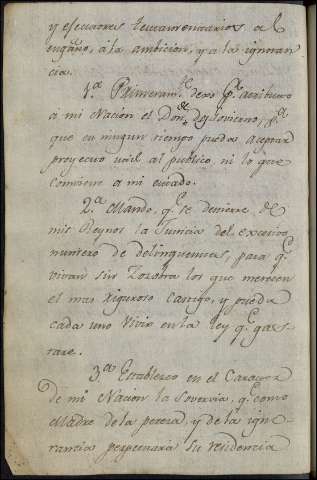 y efecutores testamentarios al
engaño, a la ambicion, y a la ignoran
cia.
1.ª Primeram.te dexo p.r
a mi Nacion el Don de Govierno, p.ª
que en ningun tiempo pueda aceptar
proyecto util al publico, ni lo que
conviene a mi estado.
2.ª Mando, q.e se destierre de
mis Reynos la Justicia del excesivo
numero de delinquentes, para q.e
vivan sin Zozobra los que merecen
el mas riguroso Castigo, y pueda
cada uno Vivir en la Ley q.e gus-
tare.
3.ª Establezco en el Caracter
de mi Nacion la Sovervia, q.e como
Madre de la pereza, y de la igno-
rancia perpetuara su residencia